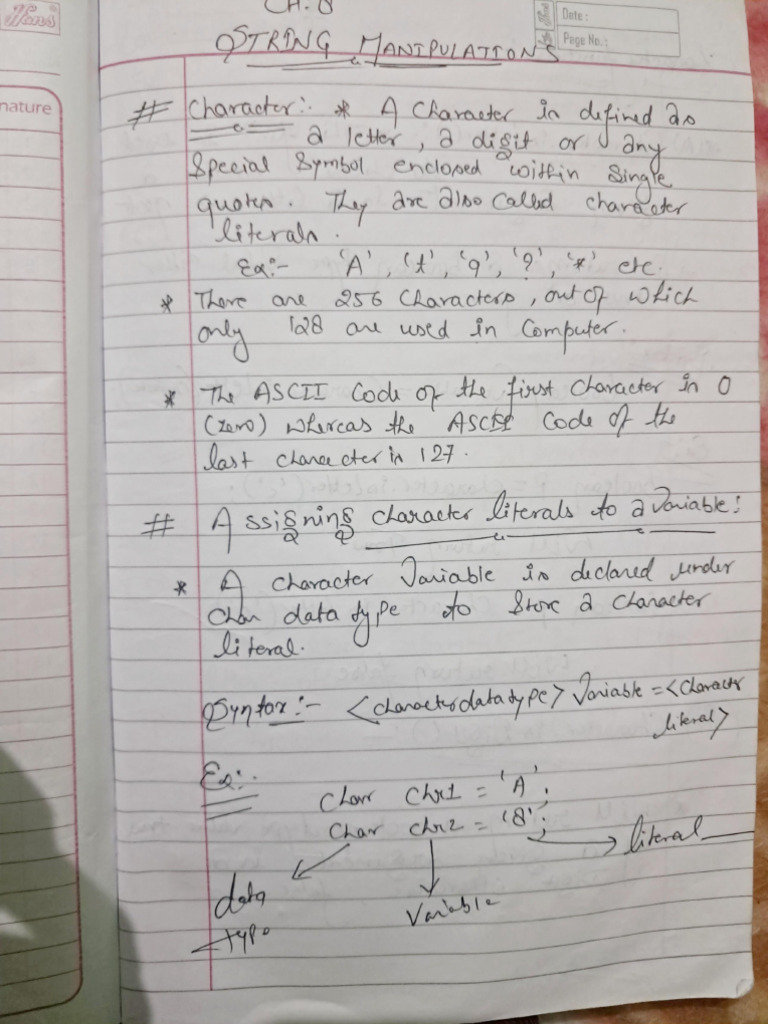 Ifens
CH. 8
Date :
Page No. :
STRING MANIPULATIONS
nature
# Character:- * A Character is defined as
a letter, a digit or any
Special Symbol enclosed within single
quotes. They are also called character
literals.
Ex:- 'A', 't', '9', '?', '*' etc.
* There are 256 Characters, out of which
only 128 are used in Computer.
* The ASCII Code of the first character is 0
(zero) whereas the ASCII Code of the
last character is 127.
# Assigning character literals to a Variable:
* A character Variable is declared under
char data type to Store a character
literal.
Syntax:- <character data type> Variable = <Character
literal>
Ex:-
Char Chr1 = 'A';
Char chr2 = '8';
literal
data
type
Variable